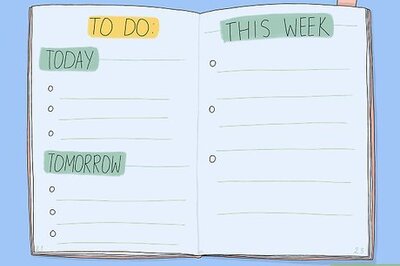 TO DO:
TODAY
TOMORROW
THIS WEEK